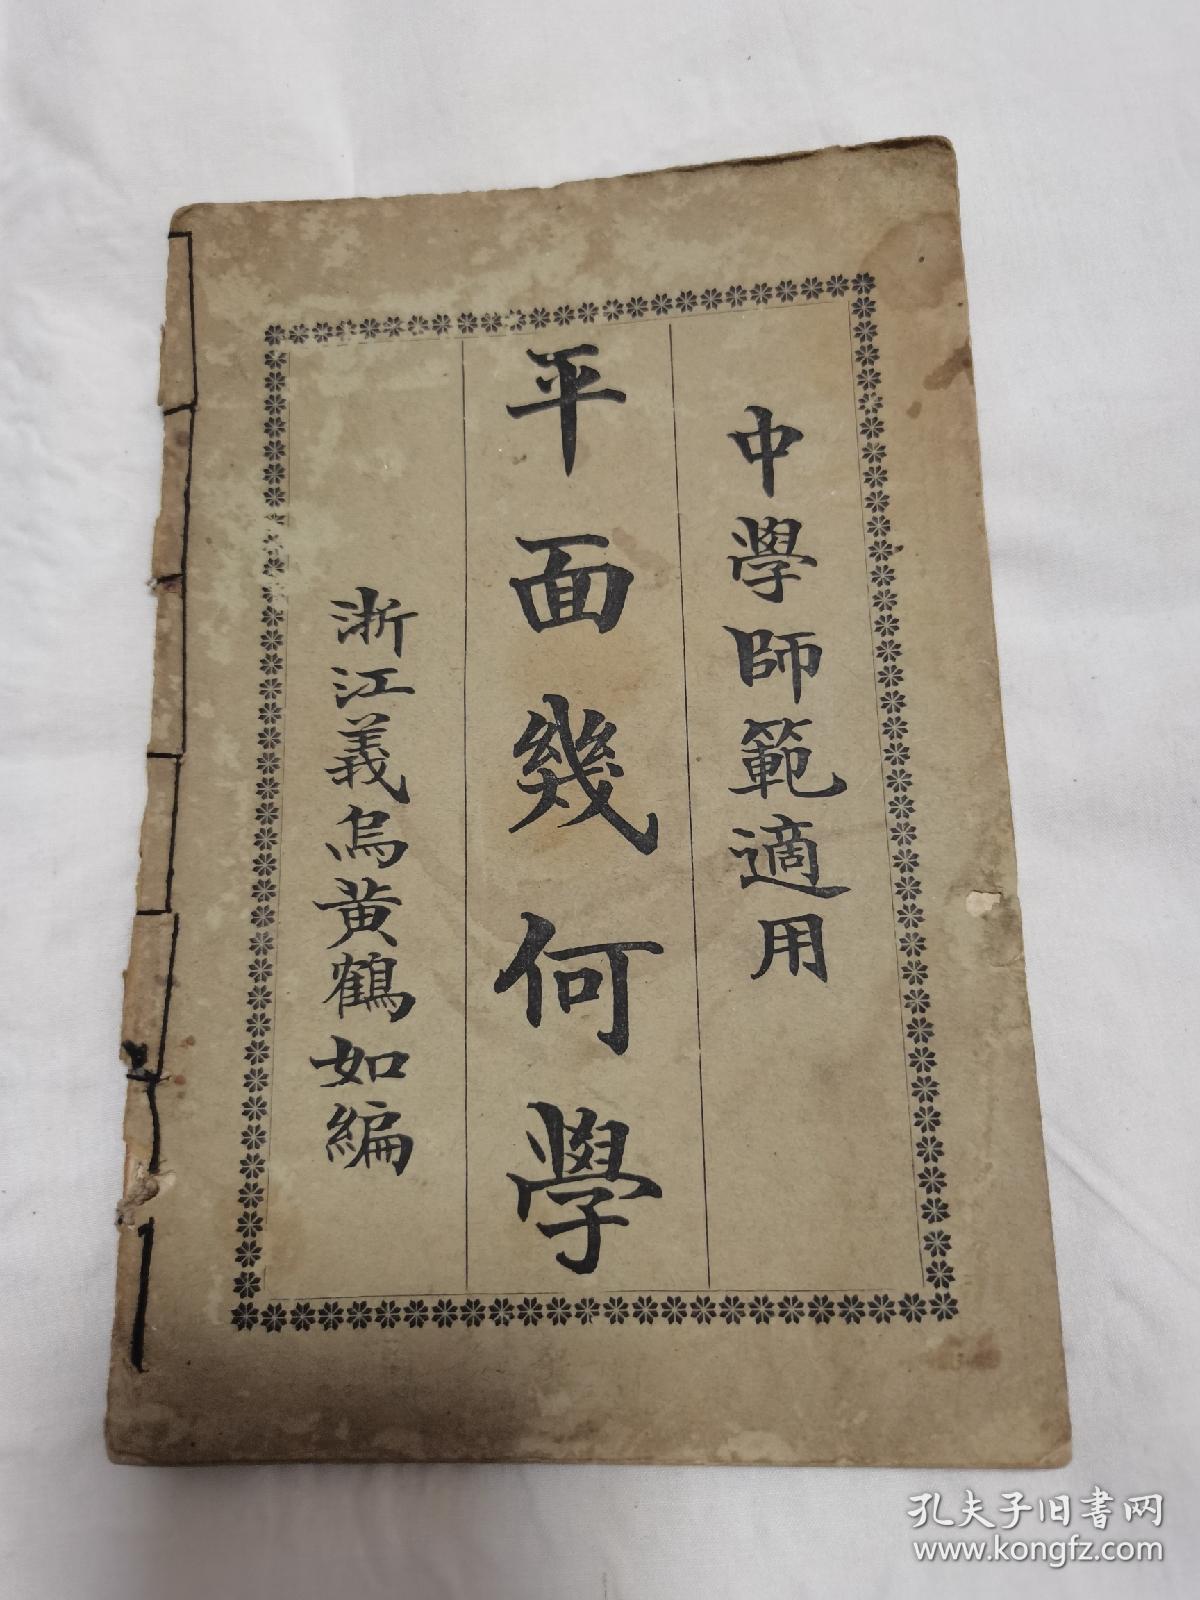 中學師範適用
平面幾何學
浙江義烏黄鶴如編
孔夫子旧书网
www.kongfz.com